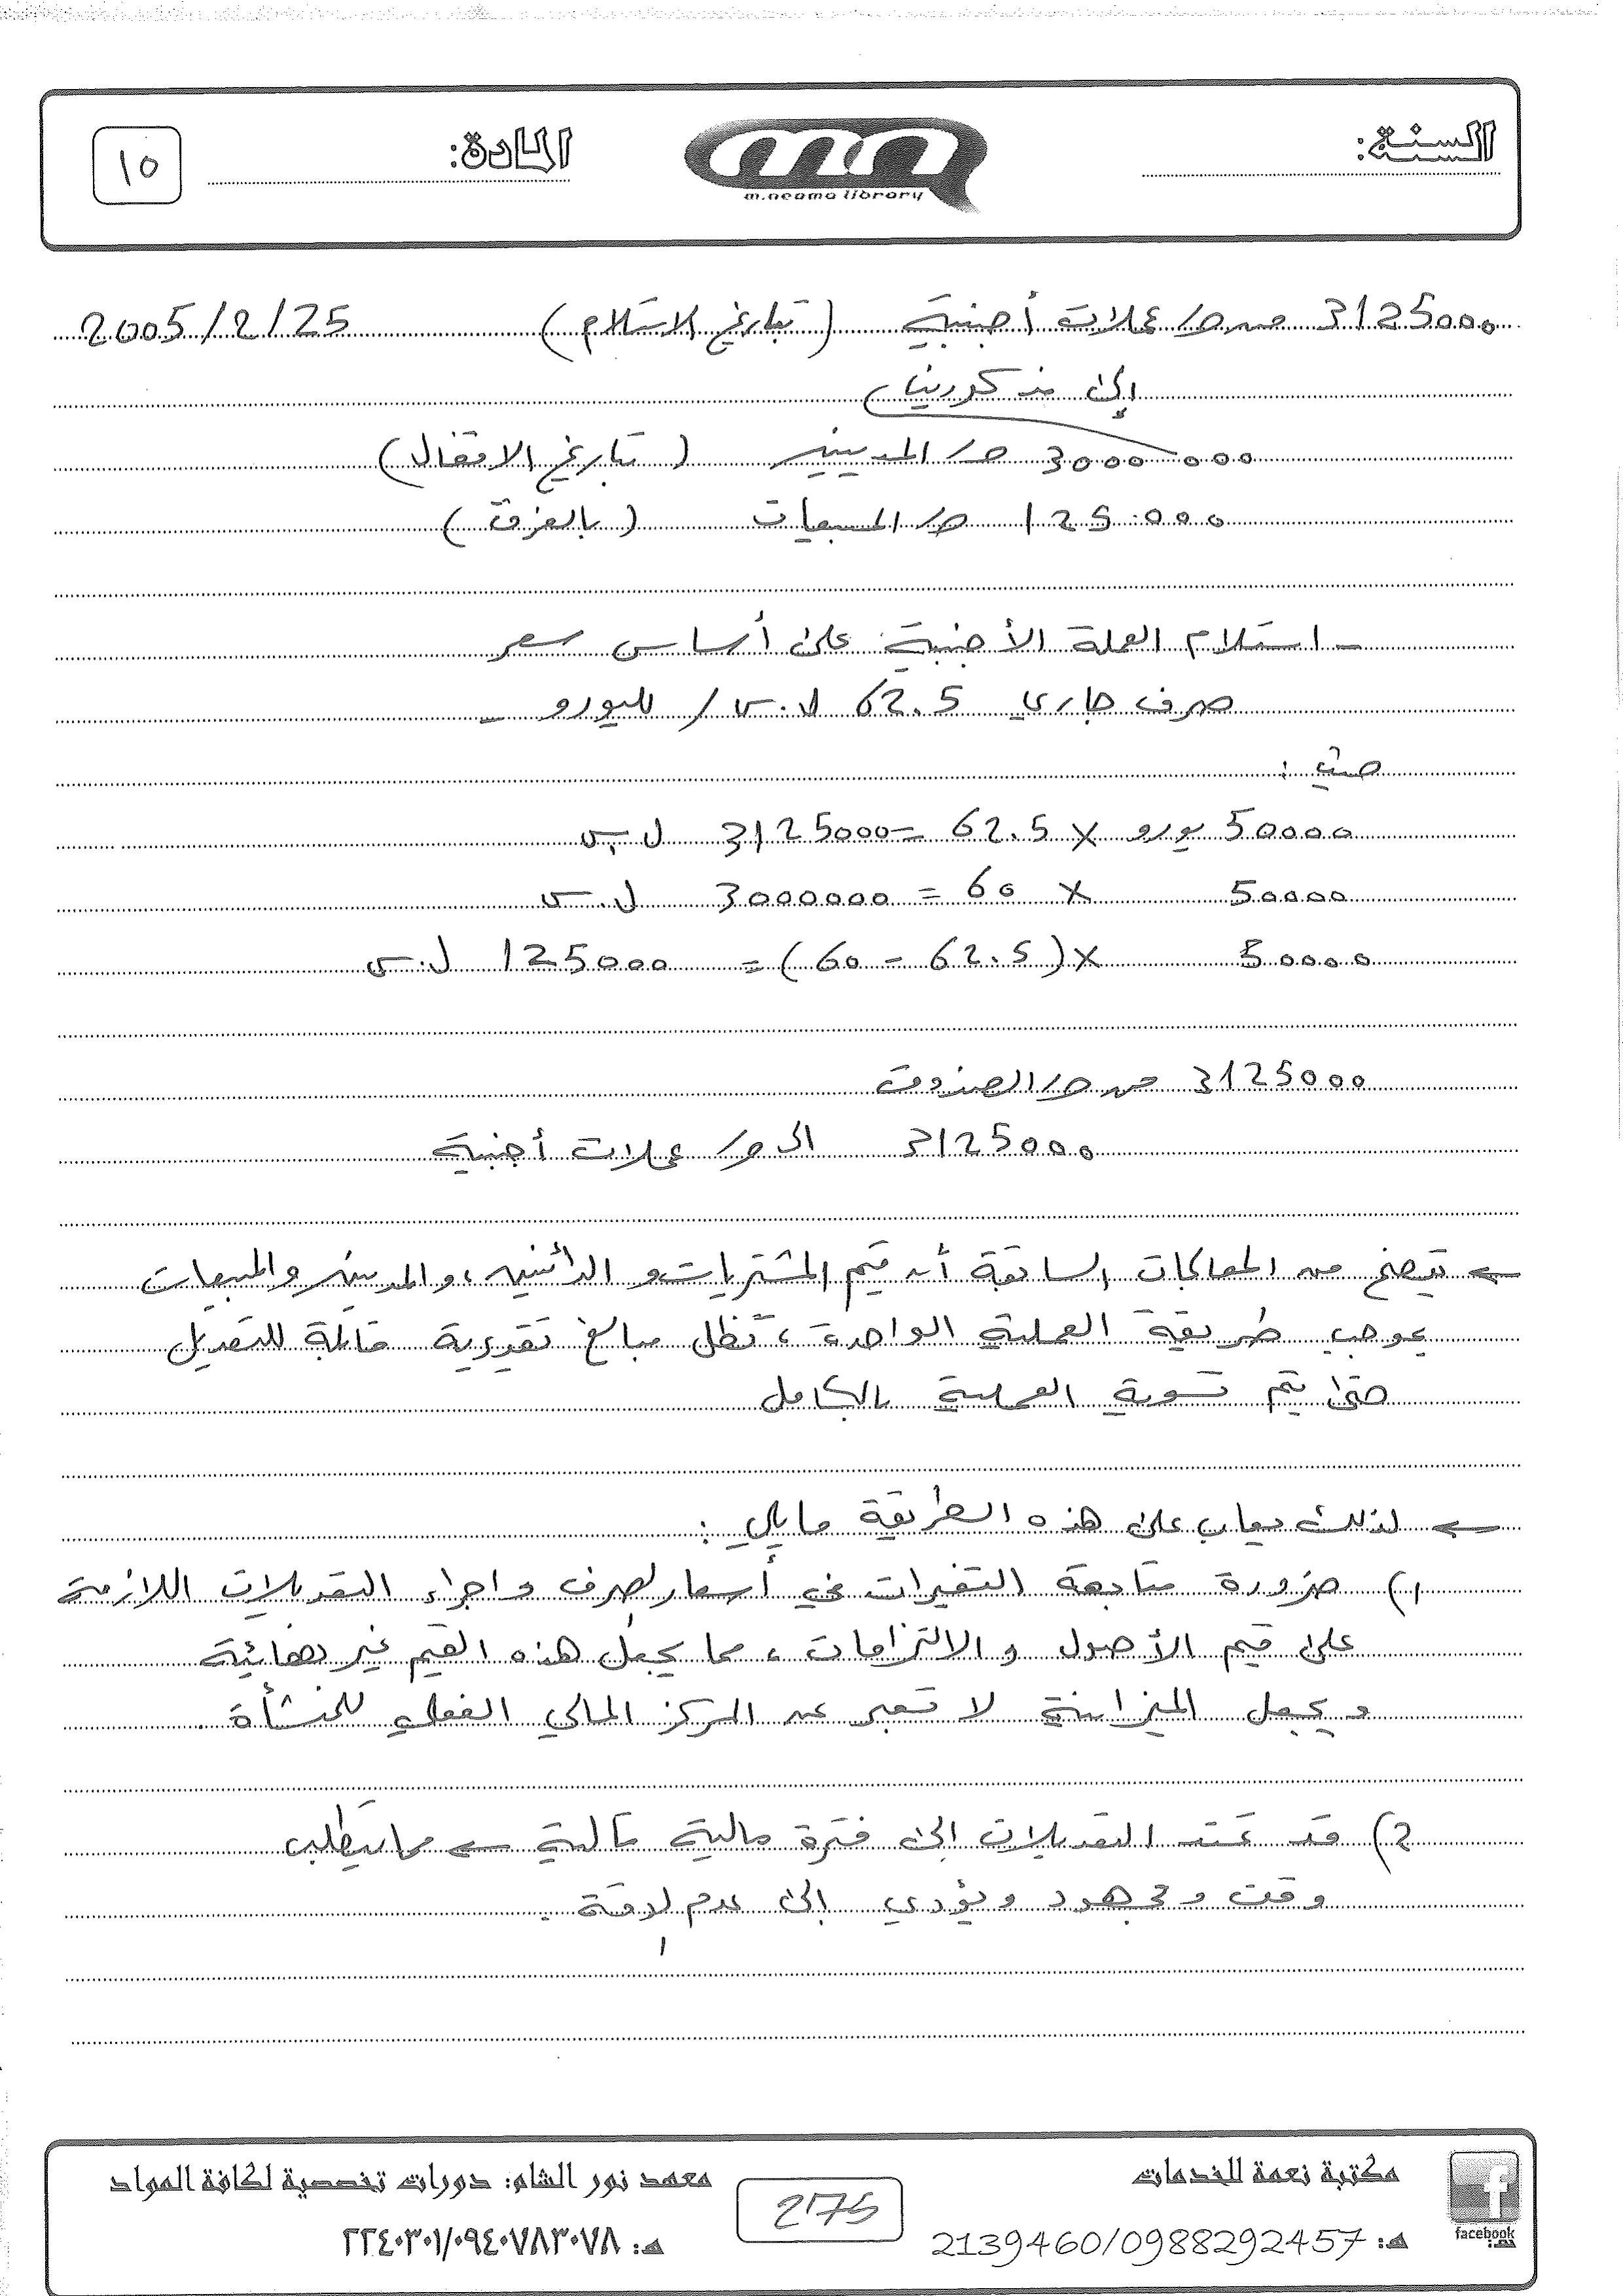 السنة:
المادة:
١٥
m.neama library
3125000 من ح/ عملات أجنبية (تاريخ الاستلام) 2005/2/25
إلى مذكورين
3000000 ح/ المدينين (تاريخ الاقفال)
125000 ح/ المبيعات (بالفرق)
- استلام العملة الأجنبية على أساس سعر
صرف جاري 62.5 ل.س / لليورو -
حيث :
50000 يورو × 62.5 = 3125000 ل.س
50000 × 60 = 3000000 ل.س
50000 × (62.5 - 60) = 125000 ل.س
3125000 من ح/ الصندوق
3125000 الى ح/ عملات أجنبية
← يتضح من المعالجات السابقة أن قيم المشتريات و الدائنين، والمدينين والمبيعات
بموجب طريقة العملية الواحدة، تظل مبالغ تقديرية قابلة للتعديل
حتى يتم تسوية العملية بالكامل
← لذلك يعاب على هذه الطريقة مايلي :
1) ضرورة متابعة التغيرات في أسعار الصرف و اجراء التعديلات اللازمة
على قيم الأصول و الالتزامات، مما يجعل هذه القيم غير نهائية
و يجعل الميزانية لا تعبر عن المركز المالي الفعلي للمنشأة.
2) قد تمتد التعديلات إلى فترة مالية تالية ← مما يتطلب
وقت و مجهود ويؤدي إلى عدم الدقة.
مكتبة نعمة للخدمات
هـ: 2139460/0988292457
2175
معهد نور الشام: دورات تخصصية لكافة المواد
هـ: ٢٢٤٠٣٠١/٠٩٤٠٧٨٣٠٧٨
facebook